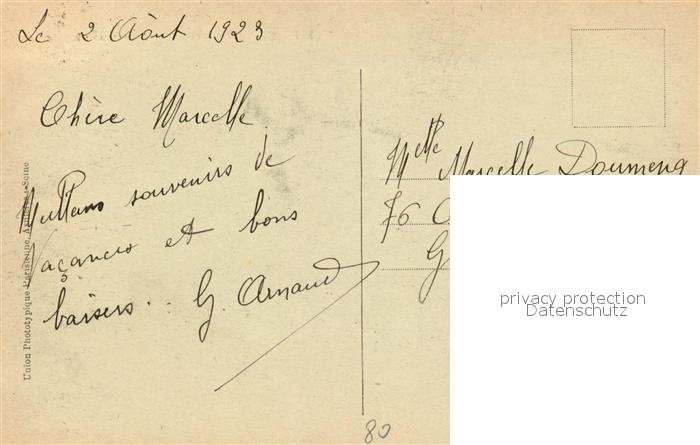 Le 2 Août 1923
Chère Marcelle.
souvenirs de
vacances et bons
baisers.. G. Arnaud
Melle Marcelle Doumeng
76
G
Union Phototypique Parisienne, Asnières-Seine
privacy protection
Datenschutz
80